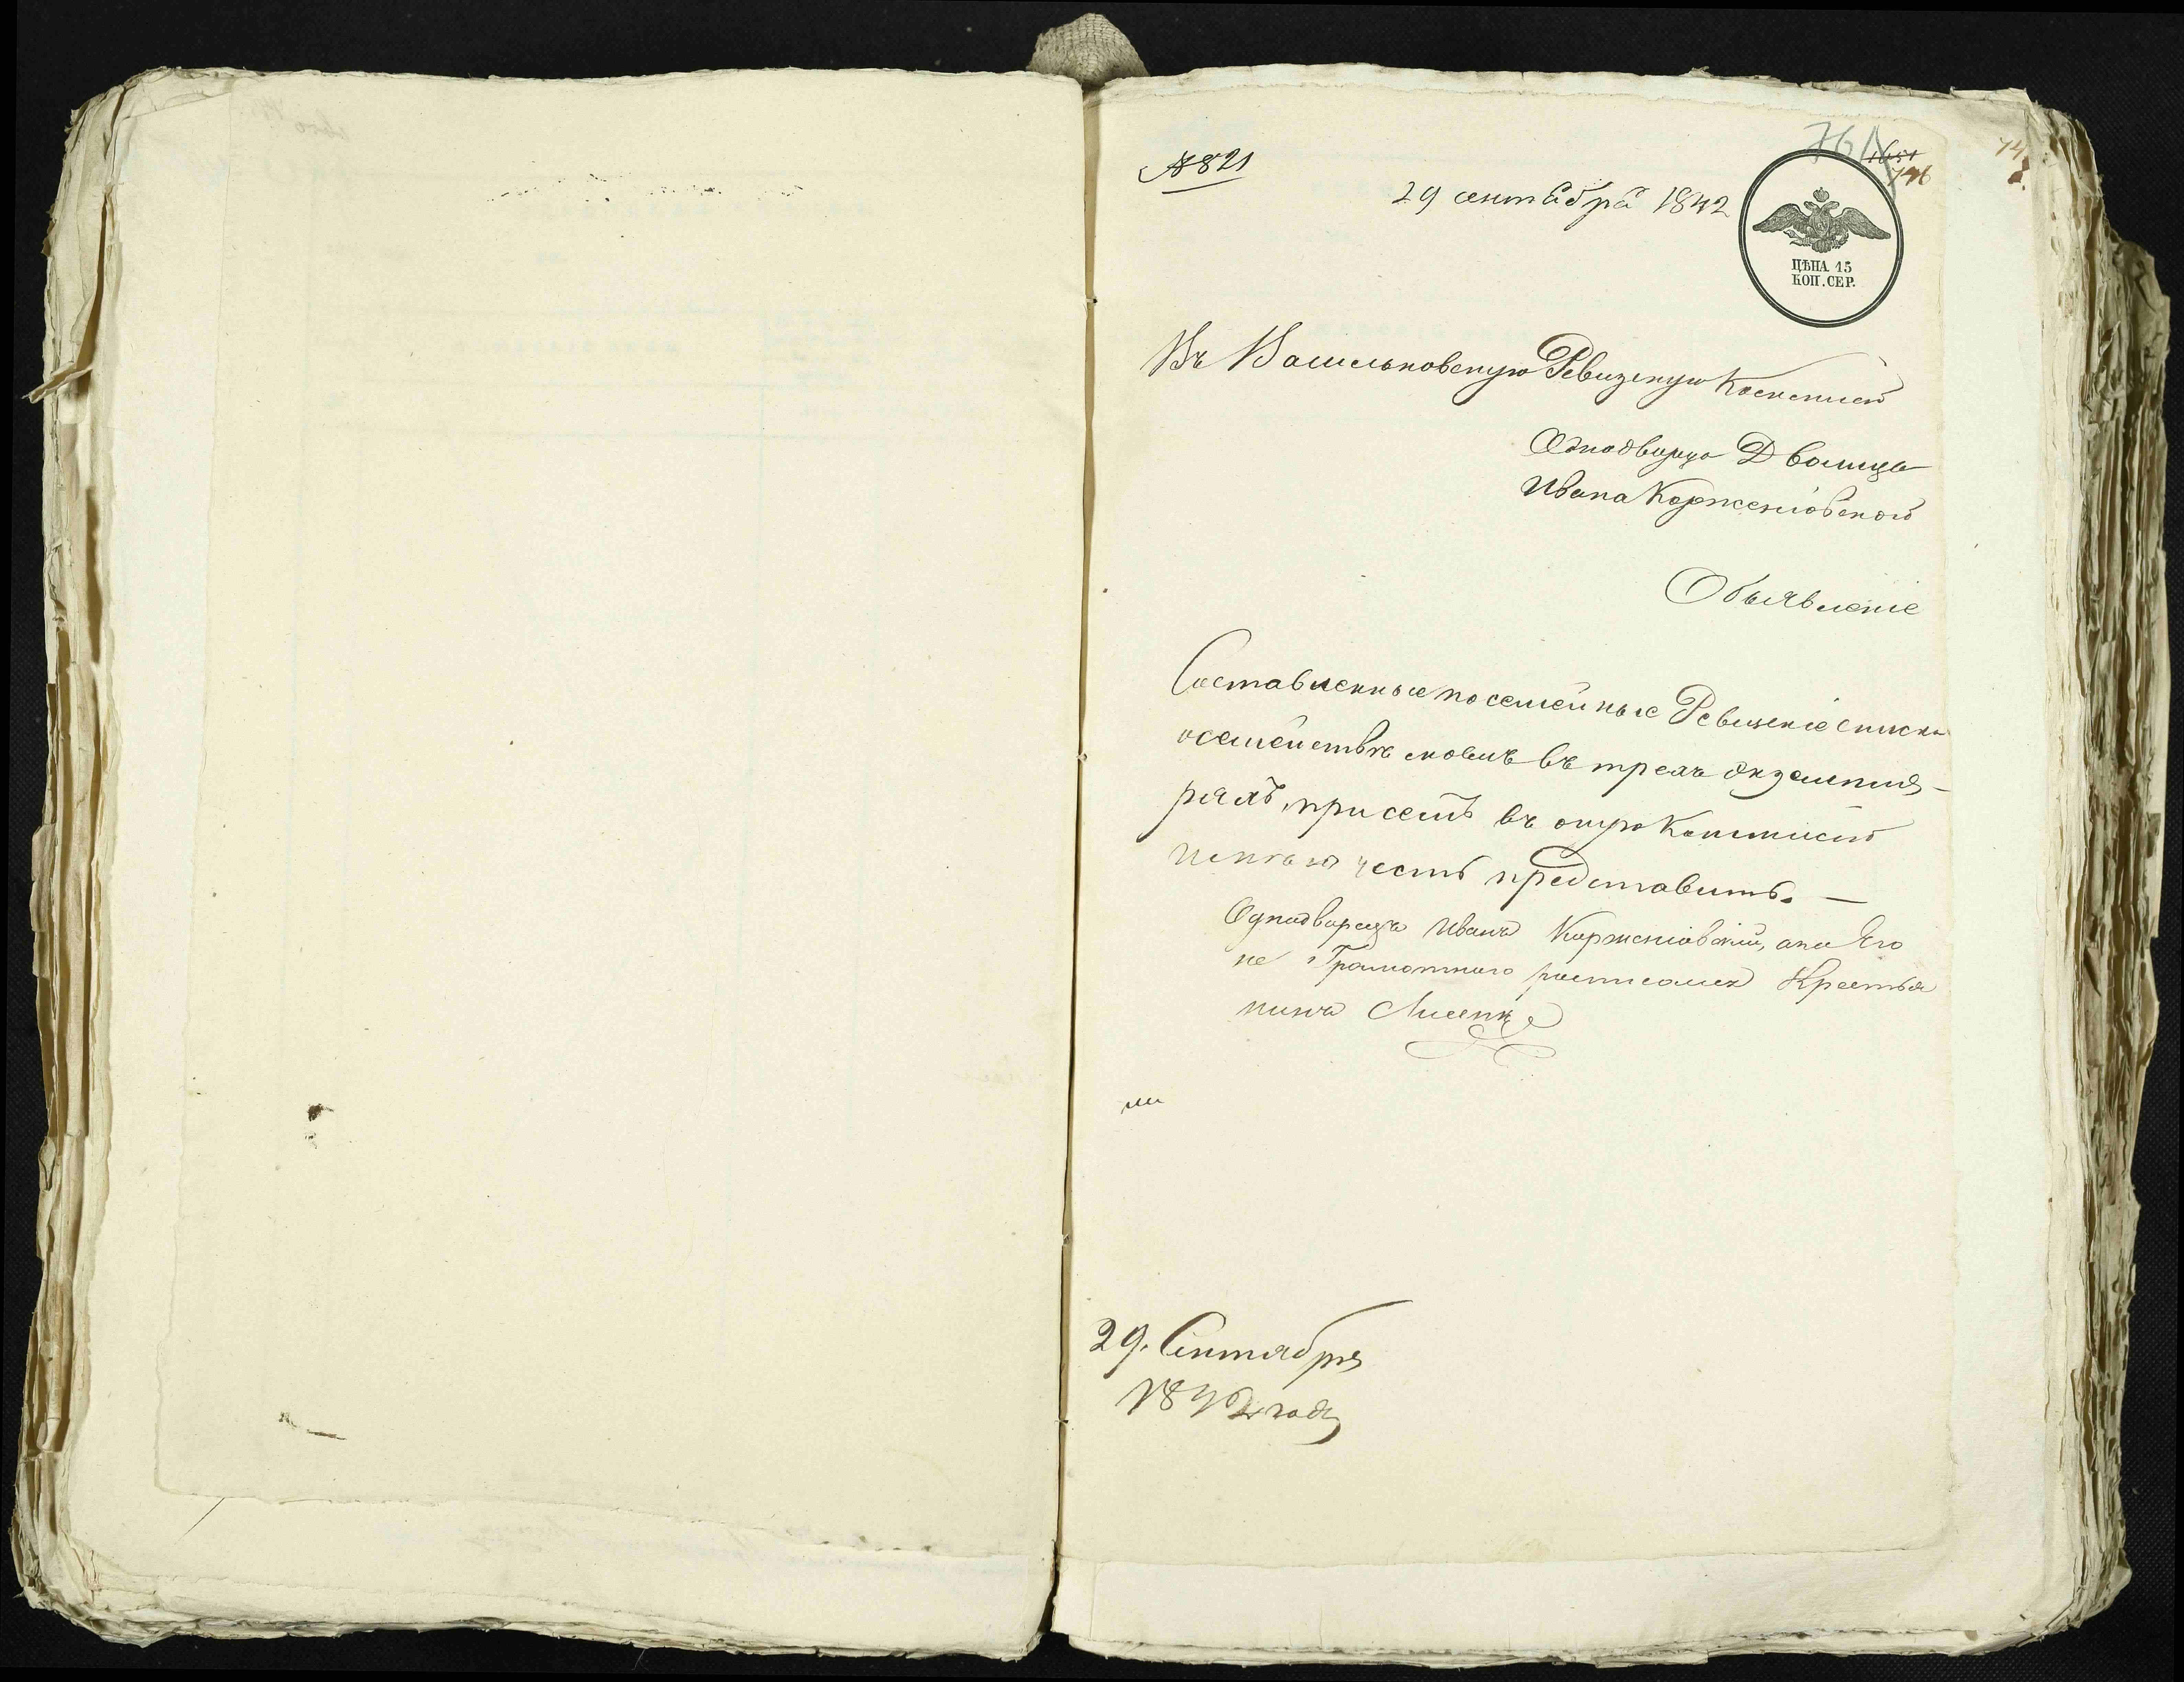 № 821
29 сентября 1842
764
1651
746
ЦѢНА 15
КОП. СЕР.
Въ Васильковскую Ревизскую Коммисію
Однодворца Дворища
Ивана Корженіовского
Объявленіе
Составленные посемейные Ревизскіе списки
о семействѣ моемъ въ трехъ экземпля-
рахъ, при семъ въ оную Коммисію
имѣю честь представить. —
Однодворецъ Иванъ Корженіовскій, а по Его
не Грамотного росписался Крестья
нинъ Лисенко
29. Сентября
1842 года